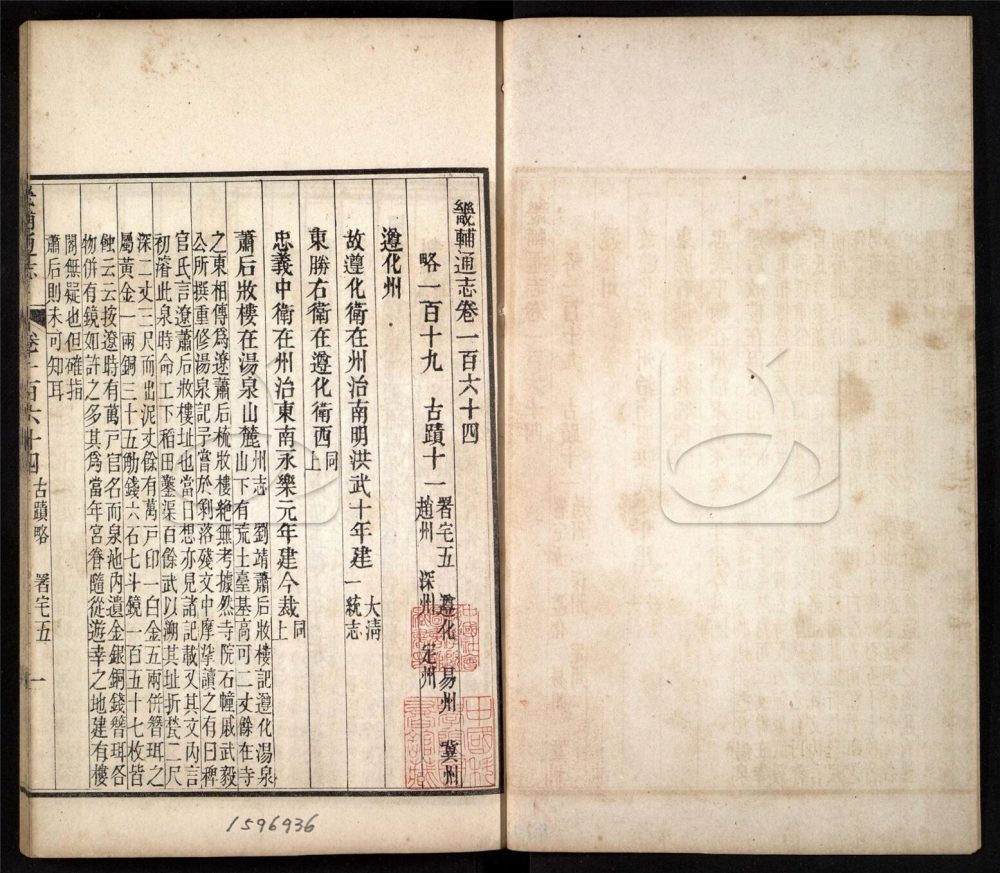 畿輔通志卷一百六十四
略一百十九 古蹟十一 署宅五 遵化 易州 冀州
趙州 深州 定州
遵化州
故遵化衞在州治南明洪武十年建 大清
一統志
東勝右衞在遵化衞西 同
上
忠義中衞在州治東南永樂元年建今裁 同
上
蕭后妝樓在湯泉山麓 州志 劉靖蕭后妝樓記遵化湯泉
山下有荒土臺基高可二丈餘在寺
之東相傳爲遼蕭后梳妝樓絶無考據然寺院石幢戚武毅
公所撰重修湯泉記予嘗於剝落殘文中摩挲讀之有曰稗
官氏言遼蕭后妝樓址也當日想亦見諸記載又其文內言
初濬此泉時命工下稻田鑿渠百餘武以溯其址折甃二尺
深二丈三尺而出泥丈餘有萬戸印一白金五兩併簪珥之
屬黃金一兩銅三十五觔錢六石七斗鏡一百五十七枚皆
蝕云云按遼時有萬戸官名而泉池內遺金銀銅錢簪珥各
物併有鏡如許之多其爲當年宮眷隨從遊幸之地建有樓
閣無疑也但確指
蕭后則未可知耳
畿輔通志 卷一百六十四 古蹟略 署宅五 一
1596936